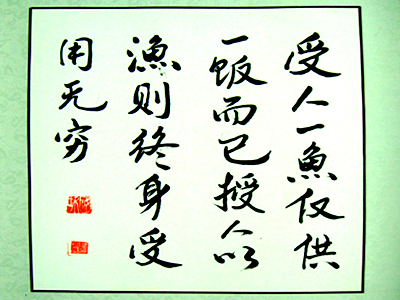 受人一魚仅供
一飯而已授人以
渔则终身受
用无穷